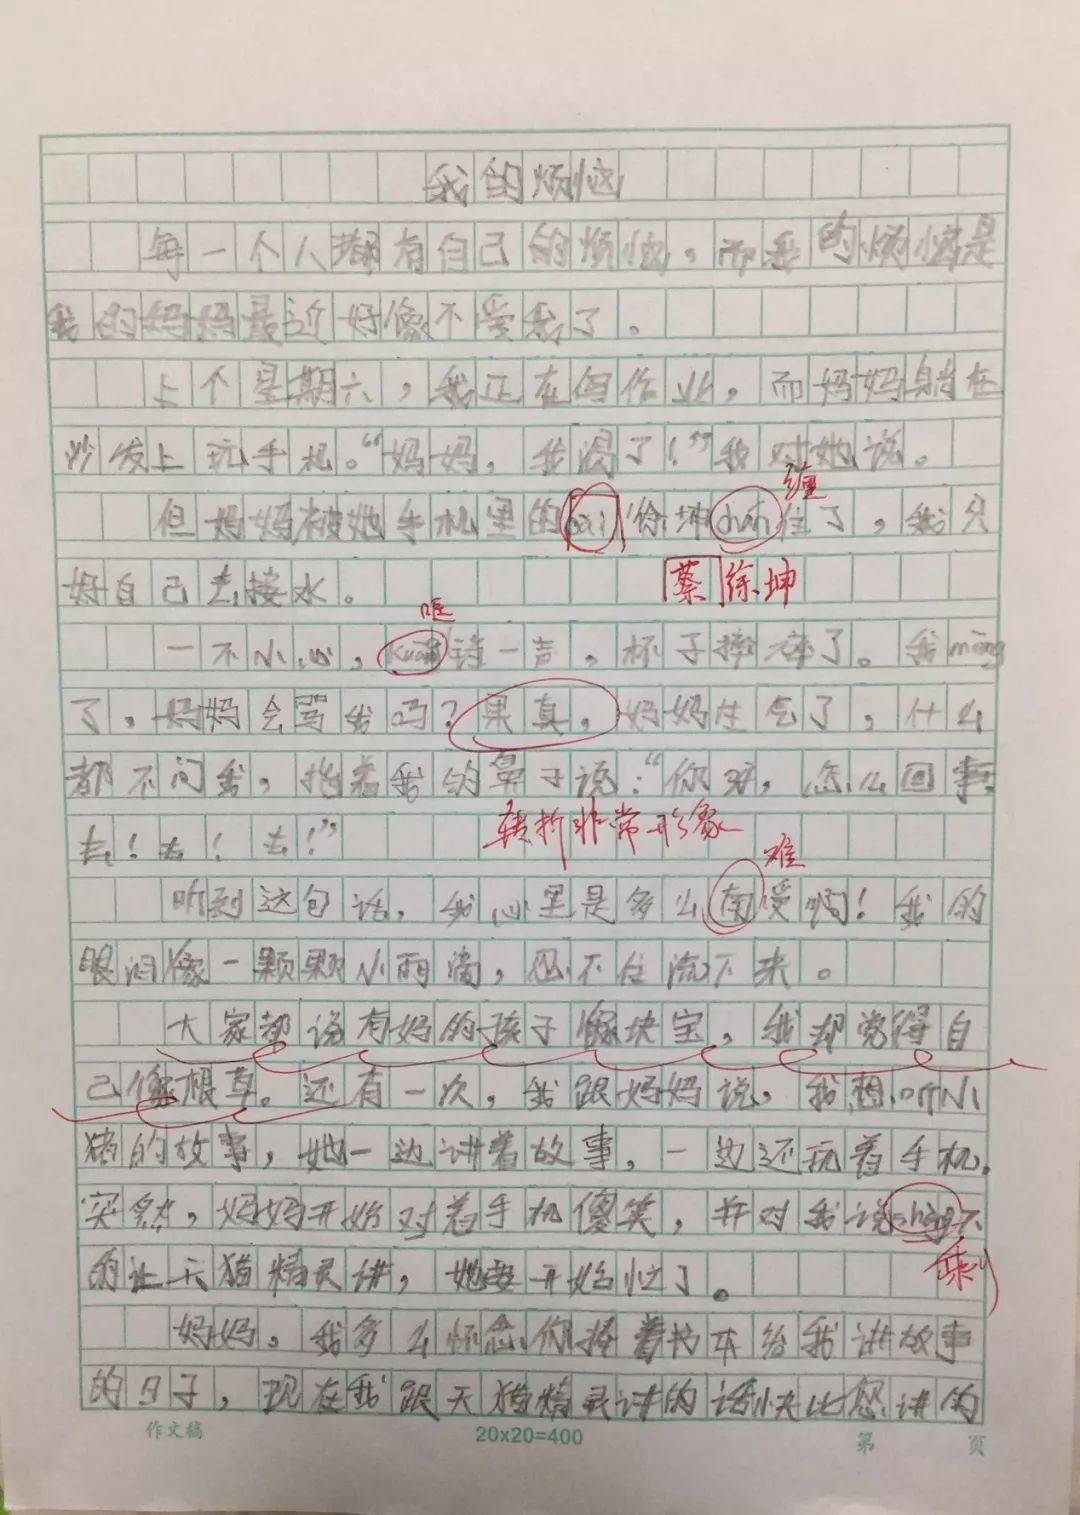 我的烦恼
每一个人都有自己的烦恼。而我的烦恼是
我的妈妈最近好像不爱我了。
上个星期六，我正在写作业，而妈妈躺在
沙发上玩手机。“妈妈，我渴了！”我对她说。
缠
但妈妈被她手机里的cài徐坤chán住了，我只
好自己去接水。
蔡徐坤
哐
一不小心，kuāng铛一声，杯子摔碎了。我měng
了，妈妈会骂我吗？果真，妈妈生气了，什么
都不问我，指着我的鼻子说：“你呀，怎么回事，
去！去！去！”
转折非常形象
难
听到这句话，我心里是多么南受啊！我的
眼泪像一颗颗小雨滴，忍不住流下来。
大家都说有妈的孩子像块宝，我却觉得自
己像根草。还有一次，我跟妈妈说，我想听小
猪的故事，她一边讲着故事，一边还玩着手机。
突然，妈妈开始对着手机傻笑，并对我说shèng下
的让天猫精灵讲，她要开始忙了。
剩
妈妈。我多么怀念你捧着书本给我讲故事
的日子，现在我跟天猫精灵讲的话快比您讲的
作文稿
20x20=400
第 页